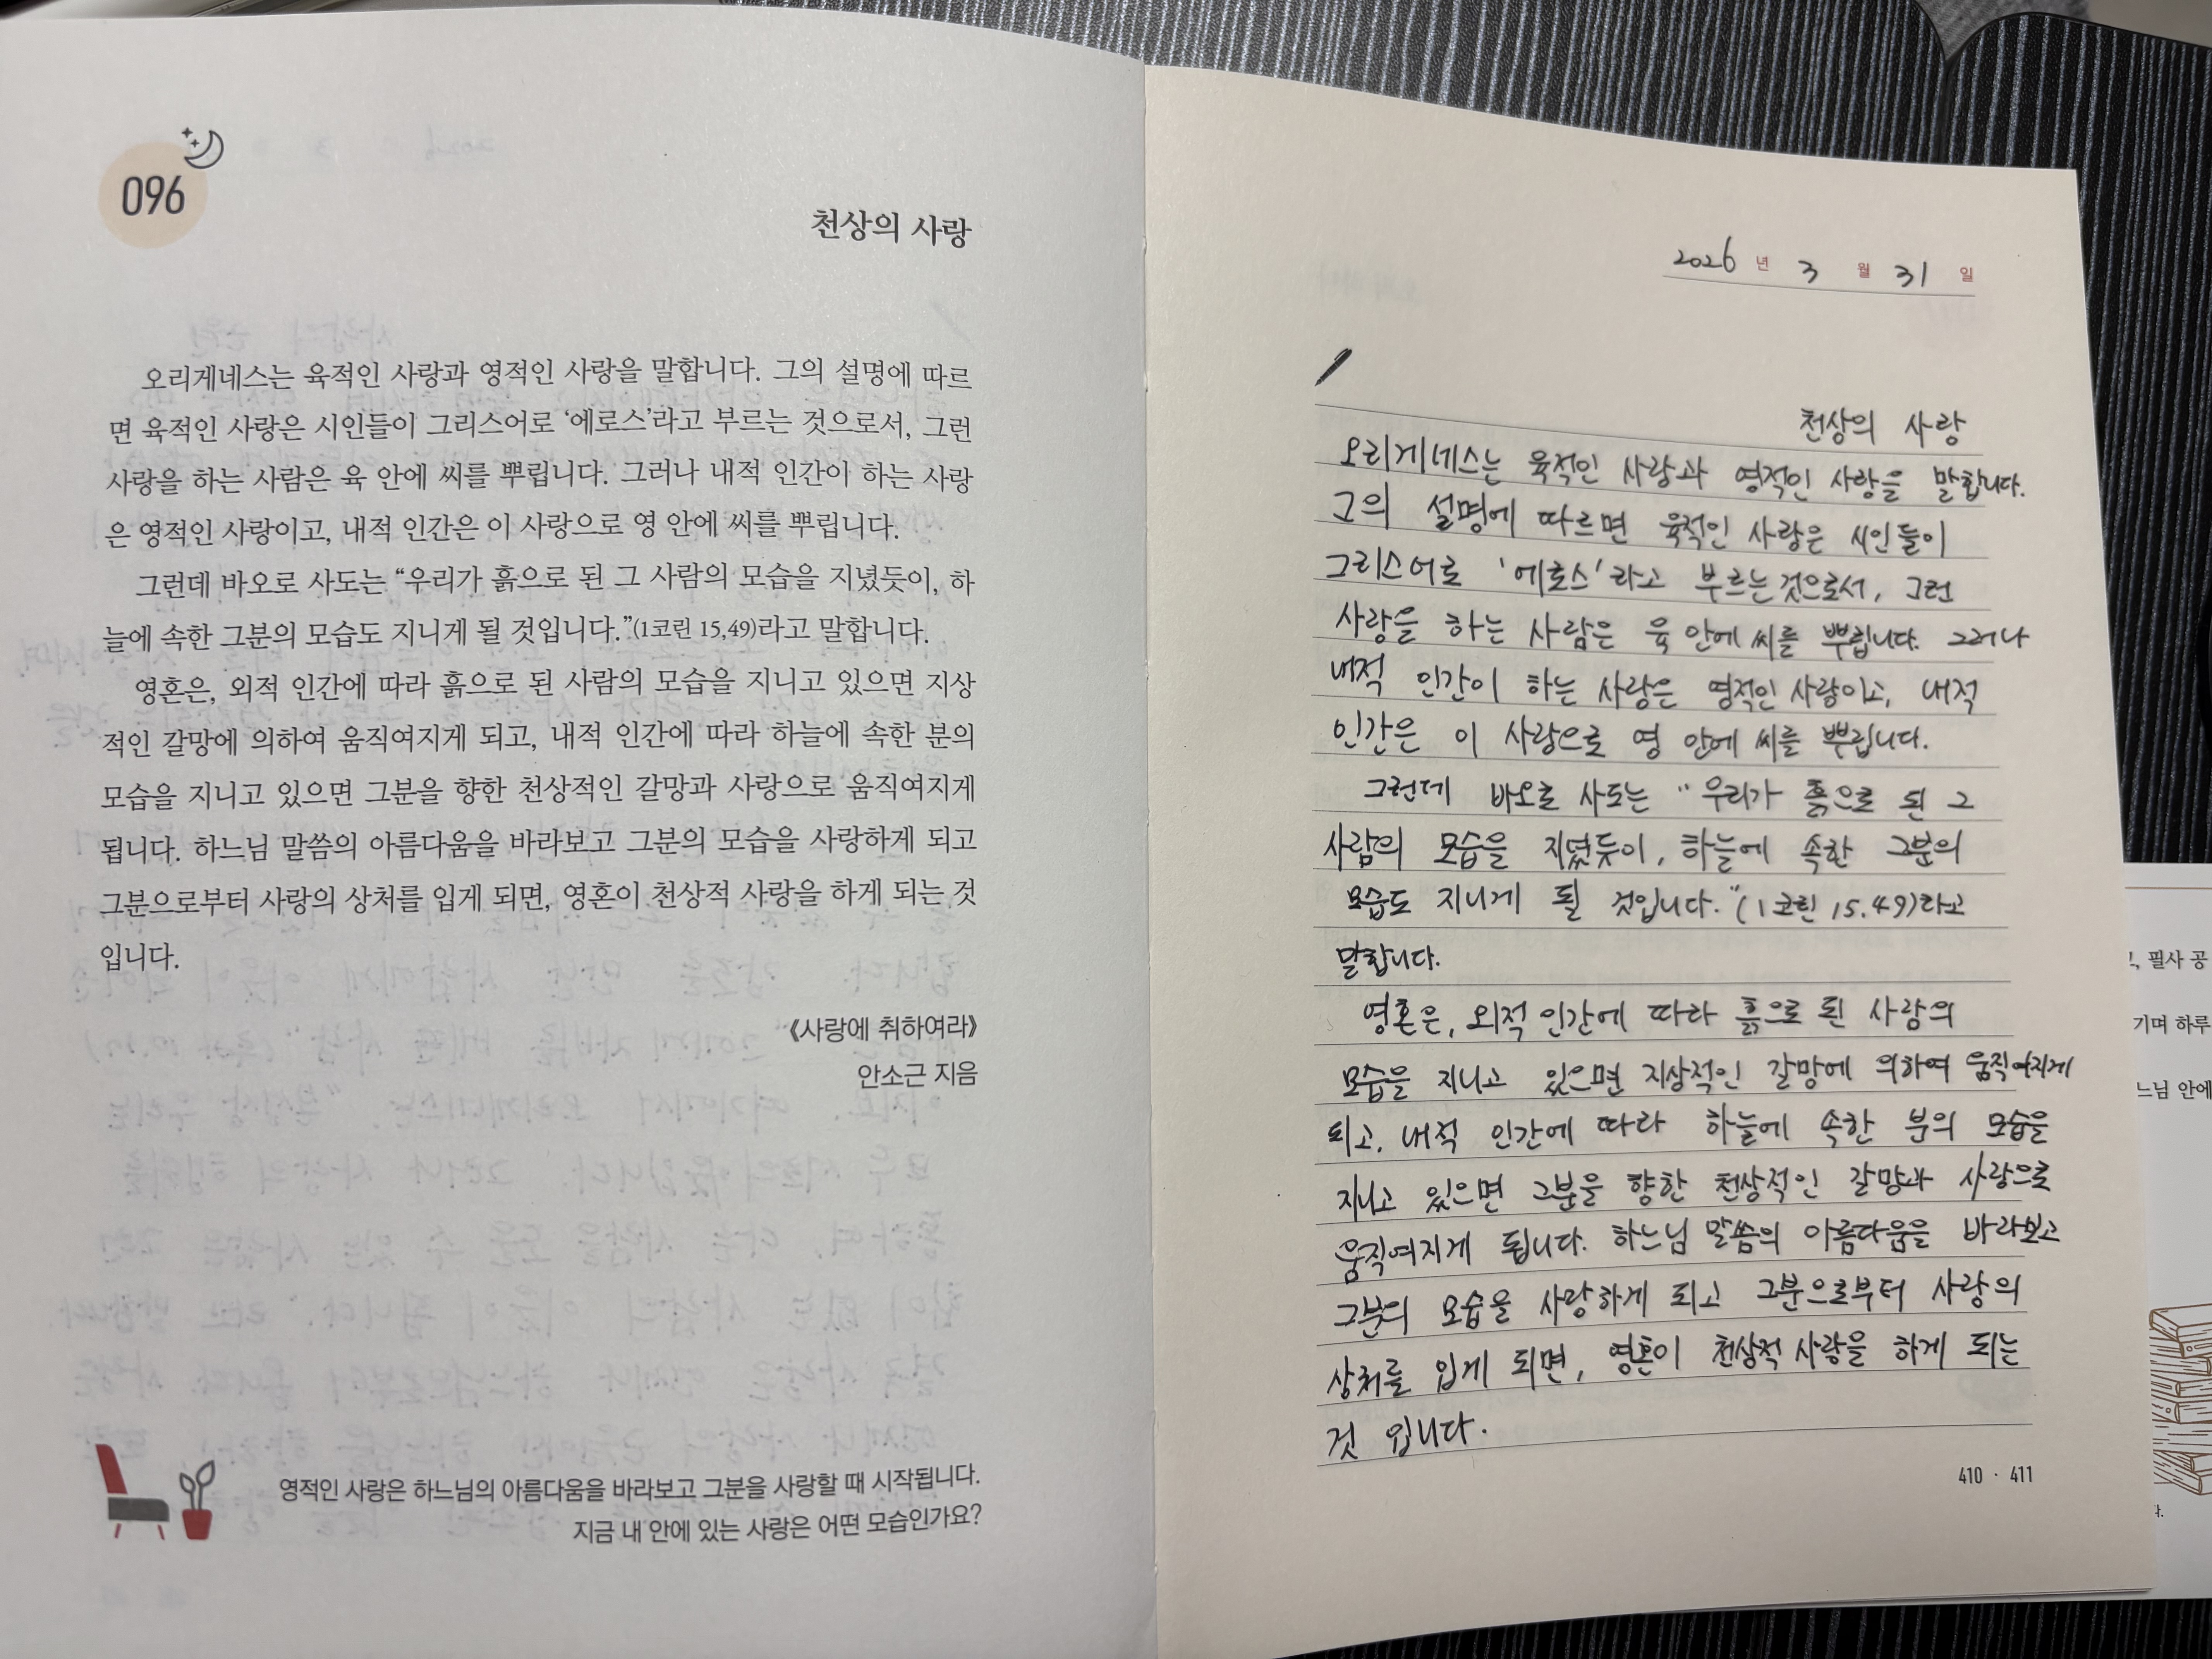 096
천상의 사랑
오리게네스는 육적인 사랑과 영적인 사랑을 말합니다. 그의 설명에 따르
면 육적인 사랑은 시인들이 그리스어로 ‘에로스’라고 부르는 것으로서, 그런
사랑을 하는 사람은 육 안에 씨를 뿌립니다. 그러나 내적 인간이 하는 사랑
은 영적인 사랑이고, 내적 인간은 이 사랑으로 영 안에 씨를 뿌립니다.
그런데 바오로 사도는 “우리가 흙으로 된 그 사람의 모습을 지녔듯이, 하
늘에 속한 그분의 모습도 지니게 될 것입니다.”(1코린 15,49)라고 말합니다.
영혼은, 외적 인간에 따라 흙으로 된 사람의 모습을 지니고 있으면 지상
적인 갈망에 의하여 움직여지게 되고, 내적 인간에 따라 하늘에 속한 분의
모습을 지니고 있으면 그분을 향한 천상적인 갈망과 사랑으로 움직여지게
됩니다. 하느님 말씀의 아름다움을 바라보고 그분의 모습을 사랑하게 되고
그분으로부터 사랑의 상처를 입게 되면, 영혼이 천상적 사랑을 하게 되는 것
입니다.
《사랑에 취하여라》
안소근 지음
영적인 사랑은 하느님의 아름다움을 바라보고 그분을 사랑할 때 시작됩니다.
지금 내 안에 있는 사랑은 어떤 모습인가요?
2026 년 3 월 31 일
천상의 사랑
오리게네스는 육적인 사랑과 영적인 사랑을 말합니다.
그의 설명에 따르면 육적인 사랑은 시인들이
그리스어로 '에로스'라고 부르는 것으로서, 그런
사랑을 하는 사람은 육 안에 씨를 뿌립니다. 그러나
내적 인간이 하는 사랑은 영적인 사랑이고, 내적
인간은 이 사랑으로 영 안에 씨를 뿌립니다.
그런데 바오로 사도는 "우리가 흙으로 된 그
사람의 모습을 지녔듯이, 하늘에 속한 그분의
모습도 지니게 될 것입니다."(1코린 15.49)라고
말합니다.
영혼은, 외적 인간에 따라 흙으로 된 사람의
모습을 지니고 있으면 지상적인 갈망에 의하여 움직여지게
되고, 내적 인간에 따라 하늘에 속한 분의 모습을
지니고 있으면 그분을 향한 천상적인 갈망과 사랑으로
움직여지게 됩니다. 하느님 말씀의 아름다움을 바라보고
그분의 모습을 사랑하게 되고 그분으로부터 사랑의
상처를 입게 되면, 영혼이 천상적 사랑을 하게 되는
것 입니다.
410 · 411
필사 공
기며 하루
느님 안에